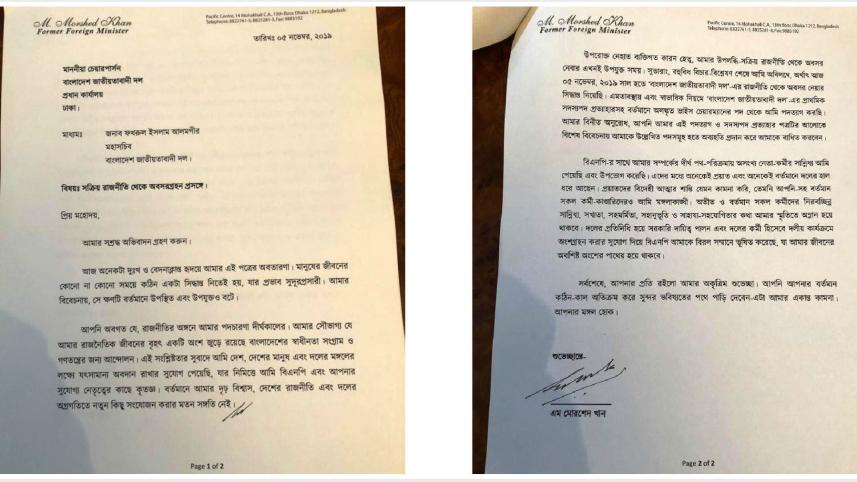 M. Morshed Khan
Former Foreign Minister
Pacific Centre, 14 Mohakhali C.A., 13th floor, Dhaka 1212, Bangladesh
তারিখঃ ০৫ নভেম্বর, ২০১৯
মাননীয়া চেয়ারপার্সন
বাংলাদেশ জাতীয়তাবাদী দল
প্রধান কার্যালয়
ঢাকা।
মাধ্যমঃ জনাব ফখরুল ইসলাম আলমগীর
মহাসচিব
বাংলাদেশ জাতীয়তাবাদী দল।
বিষয়ঃ সক্রিয় রাজনীতি থেকে অবসরগ্রহন প্রসঙ্গে।
প্রিয় মহোদয়,
আমার সশ্রদ্ধ অভিবাদন গ্রহণ করুন।
আজ অনেকটা দুঃখ ও বেদনাক্লান্ত হৃদয়ে আমার এই পত্রের অবতারণা। মানুষের জীবনের
কোনো না কোনো সময়ে কঠিন একটা সিদ্ধান্ত নিতেই হয়, যার প্রভাব সুদূরপ্রসারী। আমার
বিবেচনায়, সে ক্ষণটি বর্তমানে উপস্থিত এবং উপযুক্তও বটে।
আপনি অবগত যে, রাজনীতির অঙ্গনে আমার পদচারণা দীর্ঘকালের। আমার সৌভাগ্য যে
আমার রাজনৈতিক জীবনের বৃহৎ একটি অংশ জুড়ে রয়েছে বাংলাদেশের স্বাধীনতা সংগ্রাম ও
গণতন্ত্রের জন্য আন্দোলন। এই সংশ্লিষ্টতার সুবাদে আমি দেশ, দেশের মানুষ এবং দলের মঙ্গলের
লক্ষ্যে যৎসামান্য অবদান রাখার সুযোগ পেয়েছি, যার নিমিত্তে আমি বিএনপি এবং আপনার
সুযোগ্য নেতৃত্বের কাছে কৃতজ্ঞ। বর্তমানে আমার দৃঢ় বিশ্বাস, দেশের রাজনীতি এবং দলের
অগ্রগতিতে নতুন কিছু সংযোজন করার মতন সঙ্গতি নেই।
Page 1 of 2
M. Morshed Khan
Former Foreign Minister
Pacific Centre, 14 Mohakhali C.A., 13th floor, Dhaka 1212, Bangladesh
উপরোক্ত নেহাত ব্যক্তিগত কারন হেতু, আমার উপলব্ধি-সক্রিয় রাজনীতি থেকে অবসর
নেবার এখনই উপযুক্ত সময়। সুতারাং, বহুবিধ বিচার-বিশ্লেষণ শেষে আমি অবিলম্বে, অর্থাৎ আজ
০৫ নভেম্বর, ২০১৯ সাল হতে 'বাংলাদেশ জাতীয়তাবাদী দল'-এর রাজনীতি থেকে অবসর নেয়ার
সিদ্ধান্ত নিয়েছি। এমতাবস্থায় এবং স্বাভাবিক নিয়মে 'বাংলাদেশ জাতীয়তাবাদী দল'-এর প্রাথমিক
সদস্যপদ প্রত্যাহারসহ বর্তমানে অলঙ্কৃত ভাইস চেয়ারম্যানের পদ থেকে আমি পদত্যাগ করছি।
আমার বিনীত অনুরোধ, আপনি আমার এই পদত্যাগ ও সদস্যপদ প্রত্যাহার পত্রটির আলোকে
বিশেষ বিবেচনায় আমাকে উল্লেখিত পদসমূহ হতে অব্যহতি প্রদান করে আমাকে বাধিত করবেন।
বিএনপি-র সাথে আমার সম্পর্কের দীর্ঘ পথ-পরিক্রমায় অসংখ্য নেতা-কর্মীর সান্নিধ্য আমি
পেয়েছি এবং উপভোগ করেছি। এদের মধ্যে অনেকেই প্রয়াত এবং অনেকেই বর্তমানে দলের হাল
ধরে আছেন। প্রয়াতদের বিদেহী আত্মার শান্তি যেমন কামনা করি, তেমনি আপনি-সহ বর্তমান
সকল কর্মী-কান্ডারিদেরও আমি মঙ্গলাকাঙ্ক্ষী। অতীত ও বর্তমান সকল কর্মীদের নিরবচ্ছিন্ন
সান্নিধ্য, সখ্যতা, সহমর্মিতা, সহানুভূতি ও সাহায্য-সহযোগিতার কথা আমার স্মৃতিতে অম্লান হয়ে
থাকবে। দলের প্রতিনিধি হয়ে সরকারি দায়িত্ব পালন এবং দলের কর্মী হিসেবে দলীয় কার্যক্রমে
অংশগ্রহন করার সুযোগ দিয়ে বিএনপি আমাকে বিরল সম্মানে ভূষিত করেছে, যা আমার জীবনের
অবশিষ্ট অংশের পাথেয় হয়ে থাকবে।
সর্বশেষে, আপনার প্রতি রইলো আমার অকৃত্রিম শুভেচ্ছা। আপনি আপনার বর্তমান
কঠিন-কাল অতিক্রম করে সুন্দর ভবিষ্যতের পথে পাড়ি দেবেন-এটা আমার একান্ত কামনা।
আপনার মঙ্গল হোক।
শুভেচ্ছান্তে-
এম মোরশেদ খান
Page 2 of 2